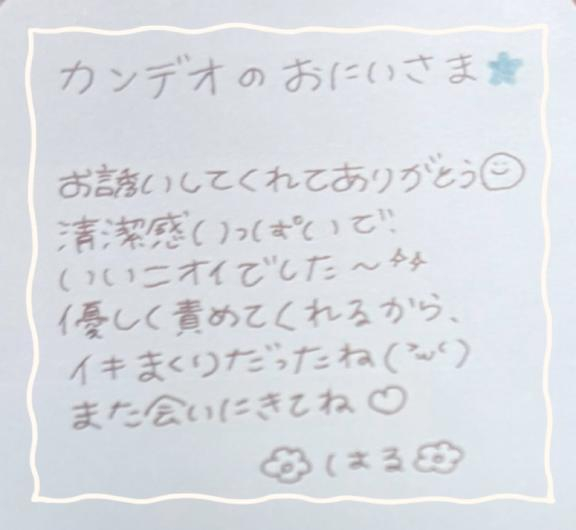 カンデオのおにいさま
お誘いしてくれてありがとう
清潔感いっぱいで、
いいニオイでした～
優しく責めてくれるから、
イキまくりだったね(˃̵ω˂̵)
また会いにきてね♡
はる